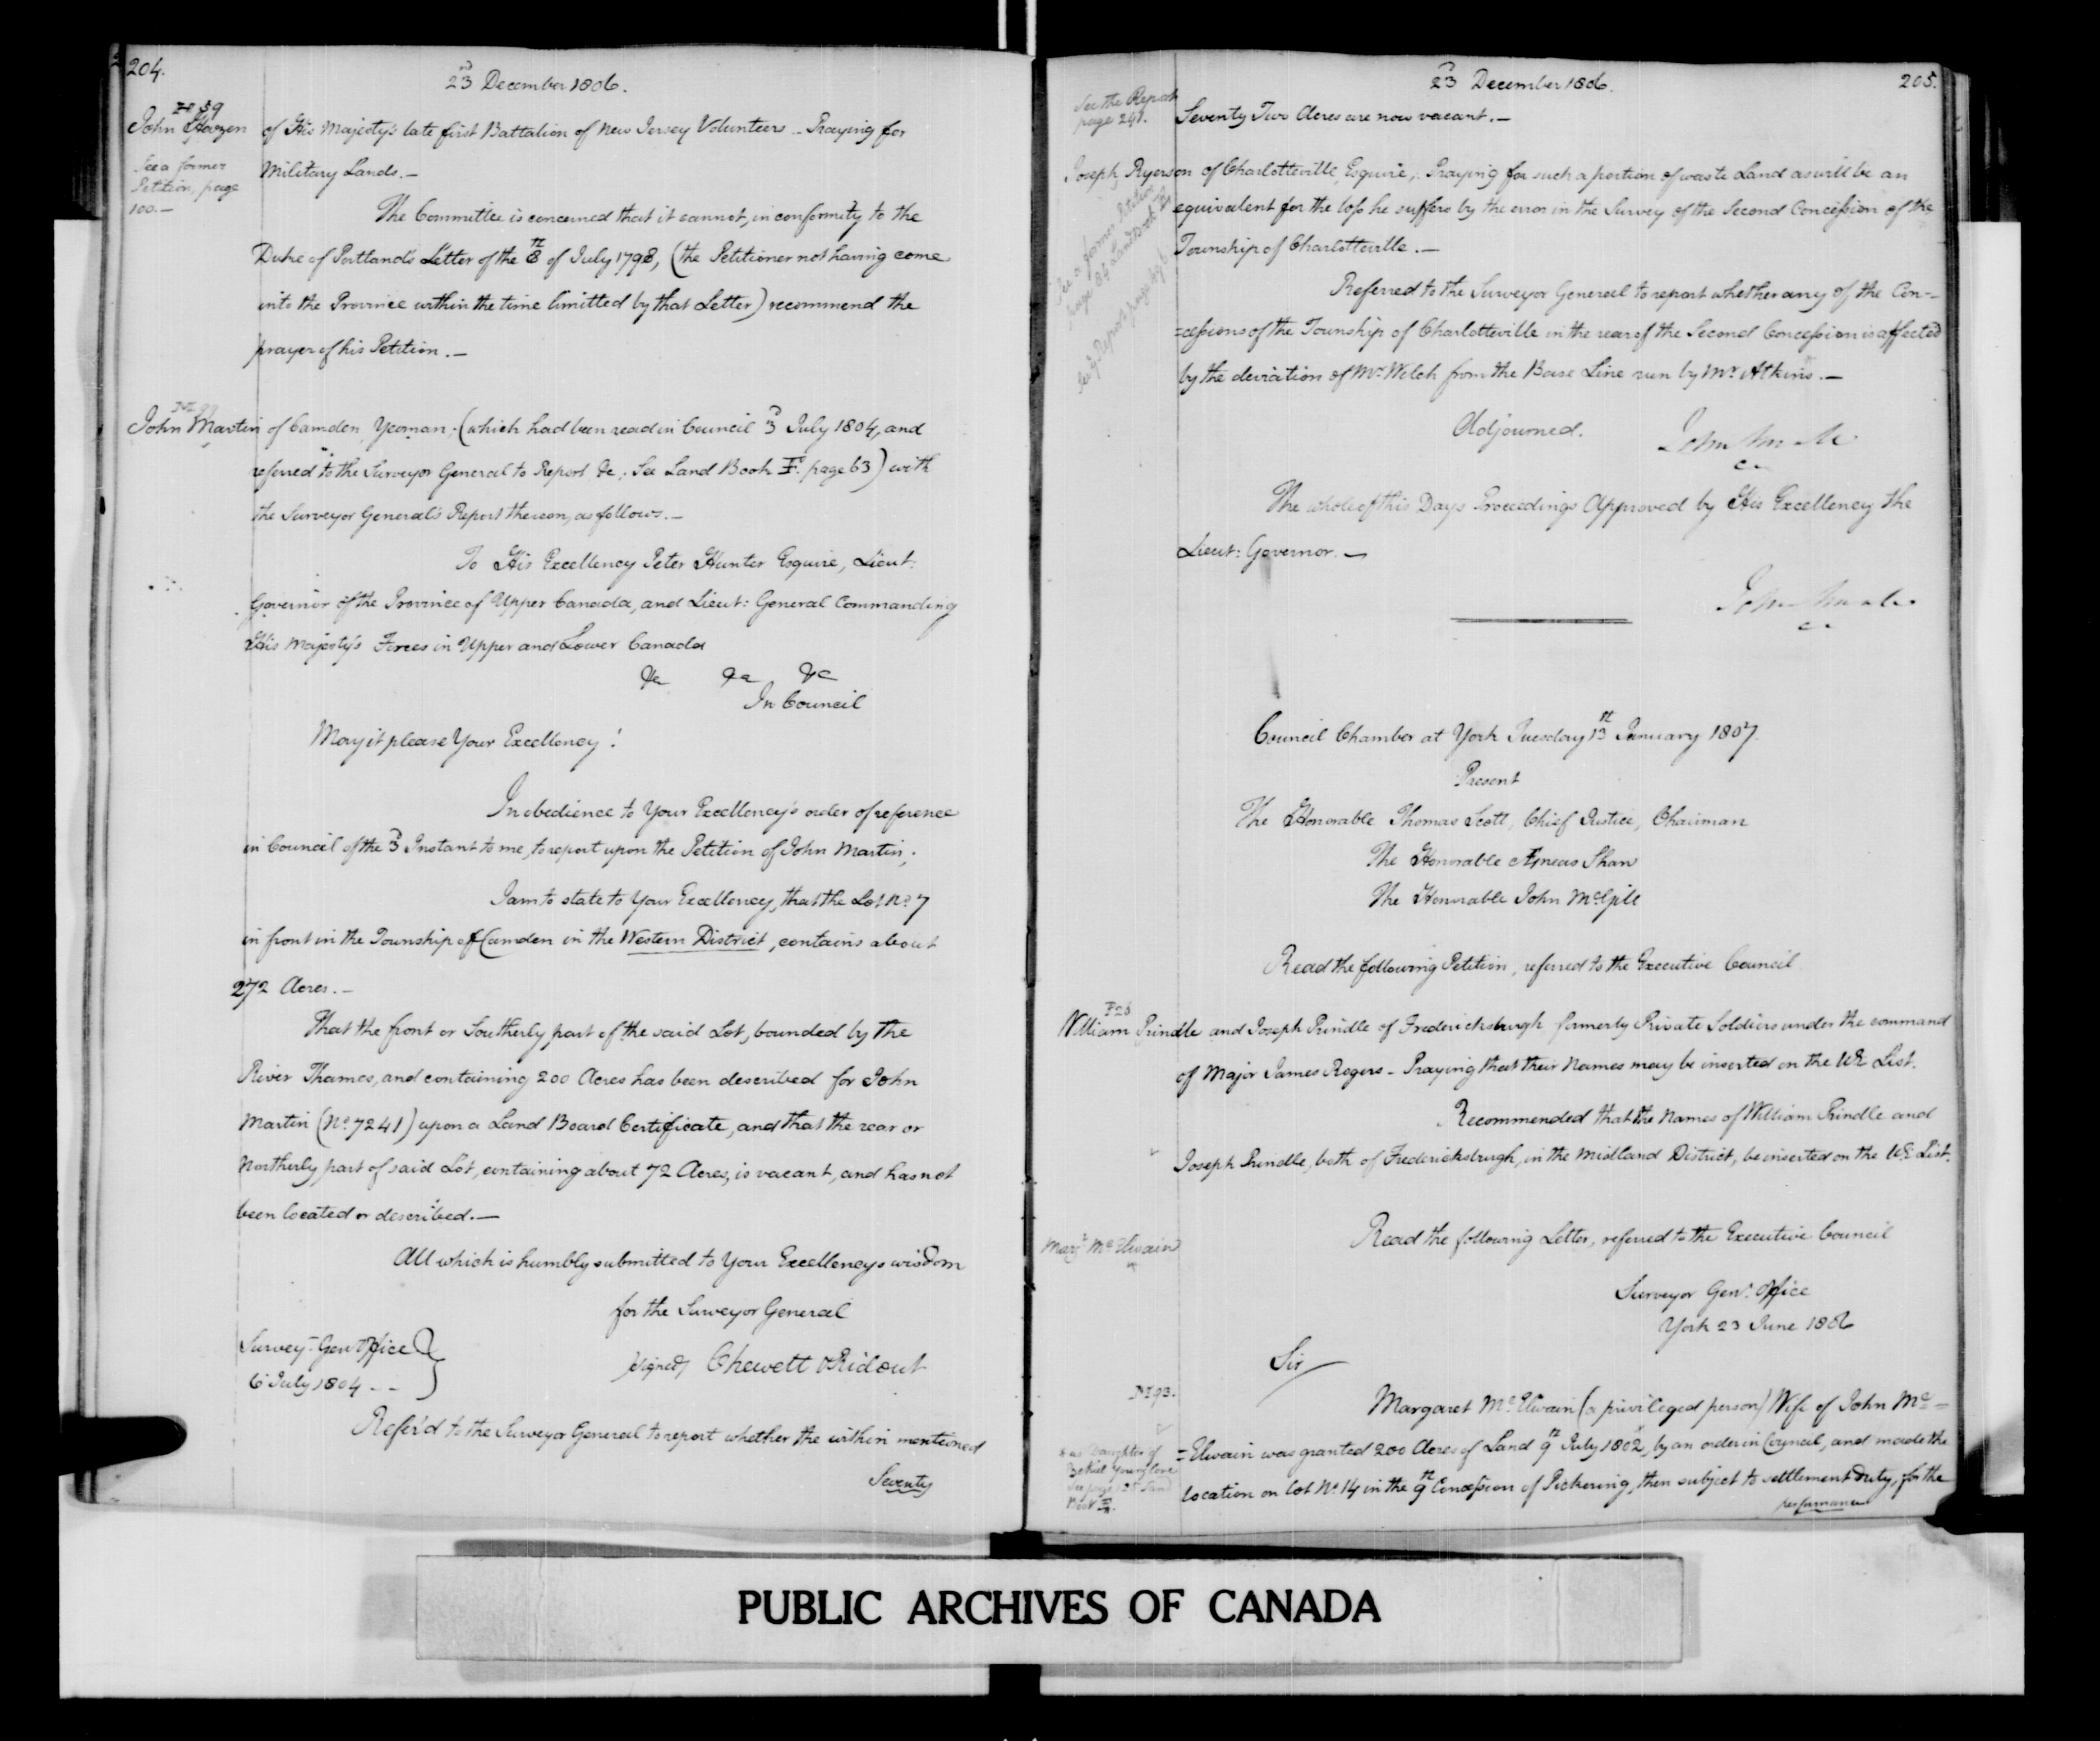 204.
23d December 1806.
H 59
John Hazen of His Majesty's late first Battalion of New Jersey Volunteers - Praying for
See a former
Petition, page
100.-
Military Lands.-
The Committee is concerned that it cannot, in conformity to the
Duke of Portland's Letter of the 8th of July 1798, (the Petitioner not having come
into the Province within the time limitted by that Letter) recommend the
prayer of his Petition.-
John Martin of Camden, Yeoman; (which had been read in Council 3d July 1804, and
referred to the Surveyor General to Report &c; See Land Book F. page 63) with
the Surveyor General's Report thereon, as follows.-
To His Excellency Peter Hunter Esquire, Lieut:
Governor of the Province of Upper Canada, and Lieut: General Commanding
His Majesty's Forces in Upper and Lower Canada
&c &c &c
In Council
May it please Your Excellency!
In obedience to Your Excellency's order of reference
in Council of the 3d Instant to me, to report upon the Petition of John Martin;
I am to state to Your Excellency, that the Lot No. 7
in front in the Township of Camden in the Western District, contains about
272 Acres.-
That the front or Southerly part of the said Lot, bounded by the
River Thames, and containing 200 Acres has been described for John
Martin (No. 7241) upon a Land Board Certificate, and that the rear or
Northerly part of said Lot, containing about 72 Acres, is vacant, and has not
been located or described.-
All which is humbly submitted to Your Excellencys wisdom
for the Surveyor General
Survey. Gen Office
6 July 1804 - -
signed Chewett & Ridout
Refer'd to the Surveyor General to report whether the within mentioned
Seventy
23d December 1806.
205.
See the Report
page 241.
Seventy Two Acres are now vacant.-
Joseph Ryerson of Charlotteville, Esquire, Praying for such a portion of waste Land as will be an
equivalent for the loss he suffers by the error in the Survey of the Second Concession of the
Township of Charlotteville.-
See a former Petition
page 84 Land Book
Referred to the Surveyor General to report whether any of the Con-
=cessions of the Township of Charlotteville in the rear of the Second Concession is affected
by the deviation of Mr. Welch from the Base Line run by Mr. Atkins.-
Adjourned.
The whole of this Days Proceedings Approved by His Excellency the
Lieut: Governor.-
Council Chamber at York Tuesday 13th January 1807.
Present
The Honorable Thomas Scott, Chief Justice, Chairman
The Honorable Æneas Shaw
The Honorable John McGill
Read the following Petition, referred to the Executive Council
William Prindle and Joseph Prindle of Fredericksburgh formerly Private Soldiers under the command
of Major James Rogers - Praying that their Names may be inserted on the UE List.
Recommended that the Names of William Prindle and
Joseph Prindle, both of Fredericksburgh, in the Midland District, be inserted on the UE List.
Read the following Letter, referred to the Executive Council
Margt. McElwain
Surveyor Genl. Office
York 23 June 1806
Sir
M 93.
Margaret McElwain (a privileged person) Wife of John Mc=
=Elwain was granted 200 Acres of Land 9th July 1802, by an order in Council, and made the
location on lot No. 14 in the 9th Concession of Pickering, then subject to settlement duty, for the
performance
PUBLIC ARCHIVES OF CANADA